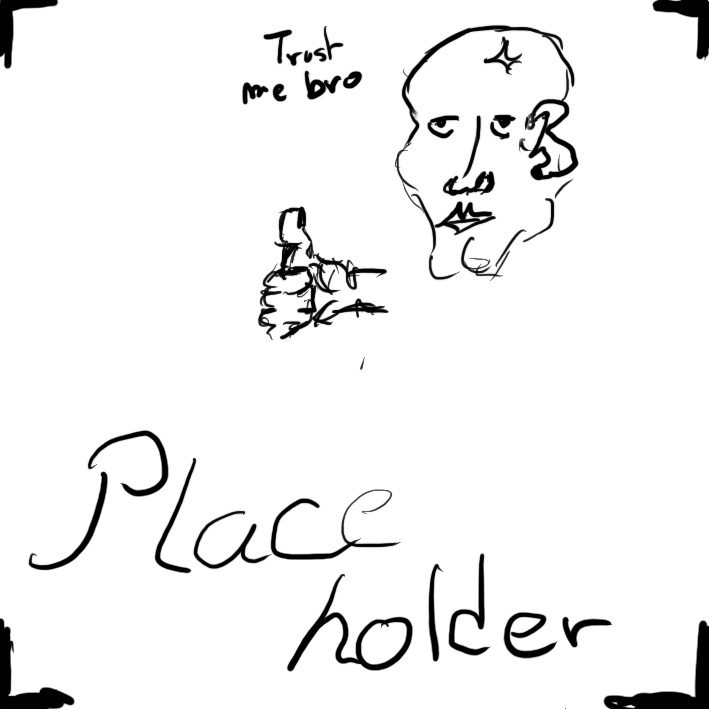 Trust
me bro
Place
holder